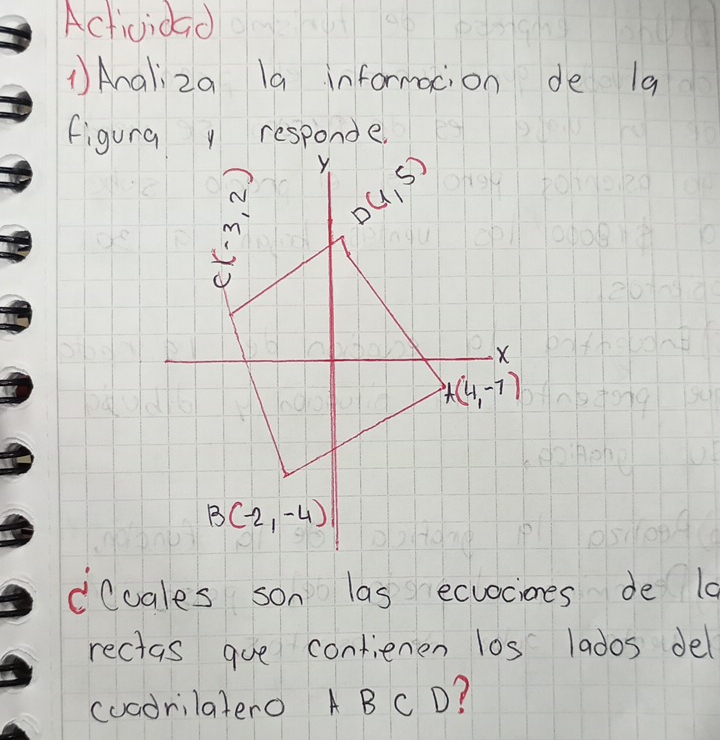 Actividad
1) Analiza la informacion de la
figura y responde.
Y
D(1,5)
C(-3,2)
X
A(4,-1)
B(-2,-4)
¿Cuales son las ecuaciones de la
rectas que contienen los lados del
cuadrilatero A B C D?